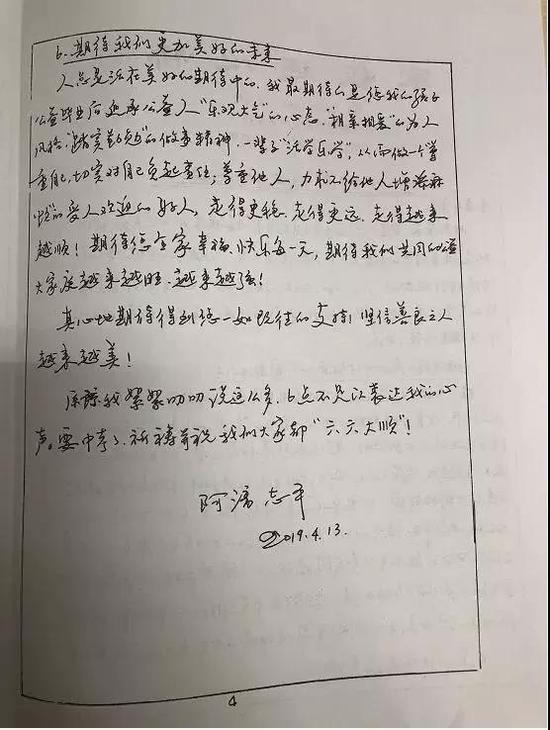 6. 期待我们更加美好的未来
人总是活在美好的期待中的. 我最期待的是您我的孩子
公益毕业后延承公益人“乐观大气”的心态. “相亲相爱”的为人
风格. “踏实勤勉”的做事精神. 一辈子“活学乐学”, 从而做一个尊
重自己, 切实对自己负起责任; 尊重他人, 力求不给他人增添麻
烦的受人欢迎的好人, 走得更稳. 走得更远. 走得越来
越顺! 期待您全家幸福. 快乐每一天, 期待我们共同的公益
大家庭越来越旺. 越来越强!
真心地期待得到您一如既往的支持! 坚信善良之人
越来越美!
原谅我絮絮叨叨说这么多. 6点不足以表达我的心
声. 要中考了. 祈祷并祝我们大家都“六六大顺”!
志平
2019.4.13.
4